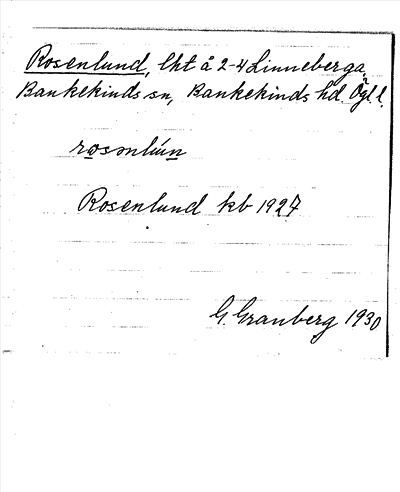 Rosenlund, lht å 2-4 Linneberga,
Bankekinds sn, Bankekinds hd. Ögl l.
rosənlún
Rosenlund kb 1927
G. Granberg 1930